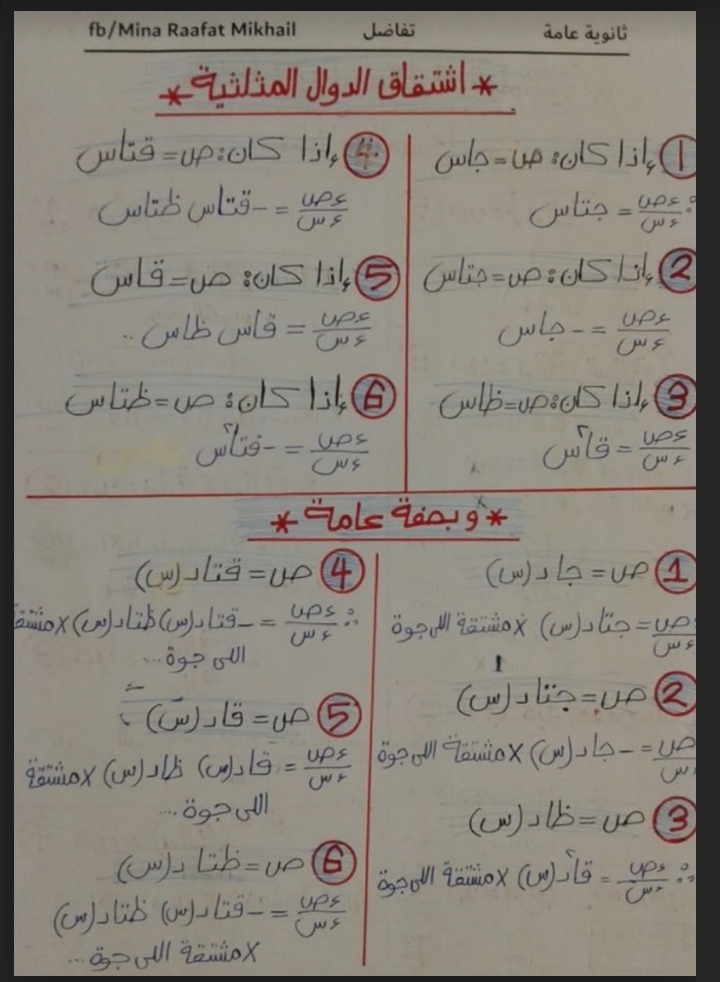 ثانوية عامة تفاضل fb/Mina Raafat Mikhail
* اشتقاق الدوال المثلثية *
1 إذا كان: ص = جاس
∴ ءص/ءس = جتاس
2 إذا كان: ص = جتاس
ءص/ءس = -جاس
3 إذا كان: ص = ظاس
ءص/ءس = قا٢س
4 إذا كان: ص = قتاس
ءص/ءس = -قتاس ظتاس
5 إذا كان: ص = قاس
ءص/ءس = قاس ظاس ..
6 إذا كان: ص = ظتاس
ءص/ءس = -قتا٢س
* وبصفة عامة *
1 ص = جا د(س)
ءص/ءس = جتا د(س) × مشتقة اللى جوة
2 ص = جتا د(س)
ءص/ءس = -جا د(س) × مشتقة اللى جوة
3 ص = ظا د(س)
∴ ءص/ءس = قا٢ د(س) × مشتقة اللى جوة
4 ص = قتا د(س)
∴ ءص/ءس = -قتا د(س) ظتا د(س) × مشتقة
اللى جوة ...
5 ص = قا د(س)
ءص/ءس = قا د(س) ظا د(س) × مشتقة
اللى جوة ...
6 ص = ظتا د(س)
ءص/ءس = -قتا د(س) ظتا د(س)
× مشتقة اللى جوة ...